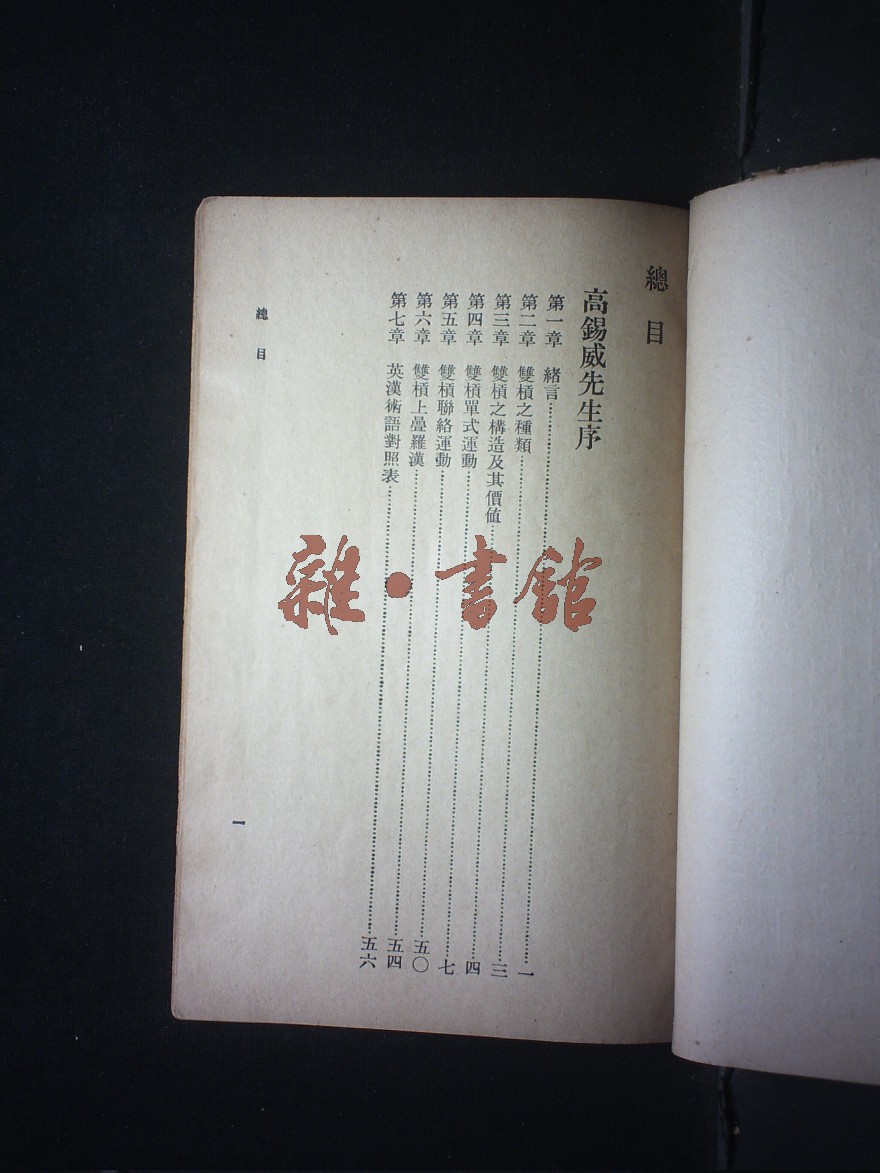 總目
高錫威先生序
第一章 緒言……一
第二章 雙槓之種類……三
第三章 雙槓之構造及其價值……四
第四章 雙槓單式運動……七
第五章 雙槓聯絡運動……五〇
第六章 雙槓上疊羅漢……五四
第七章 英漢術語對照表……五六
總目
一
雜·書館